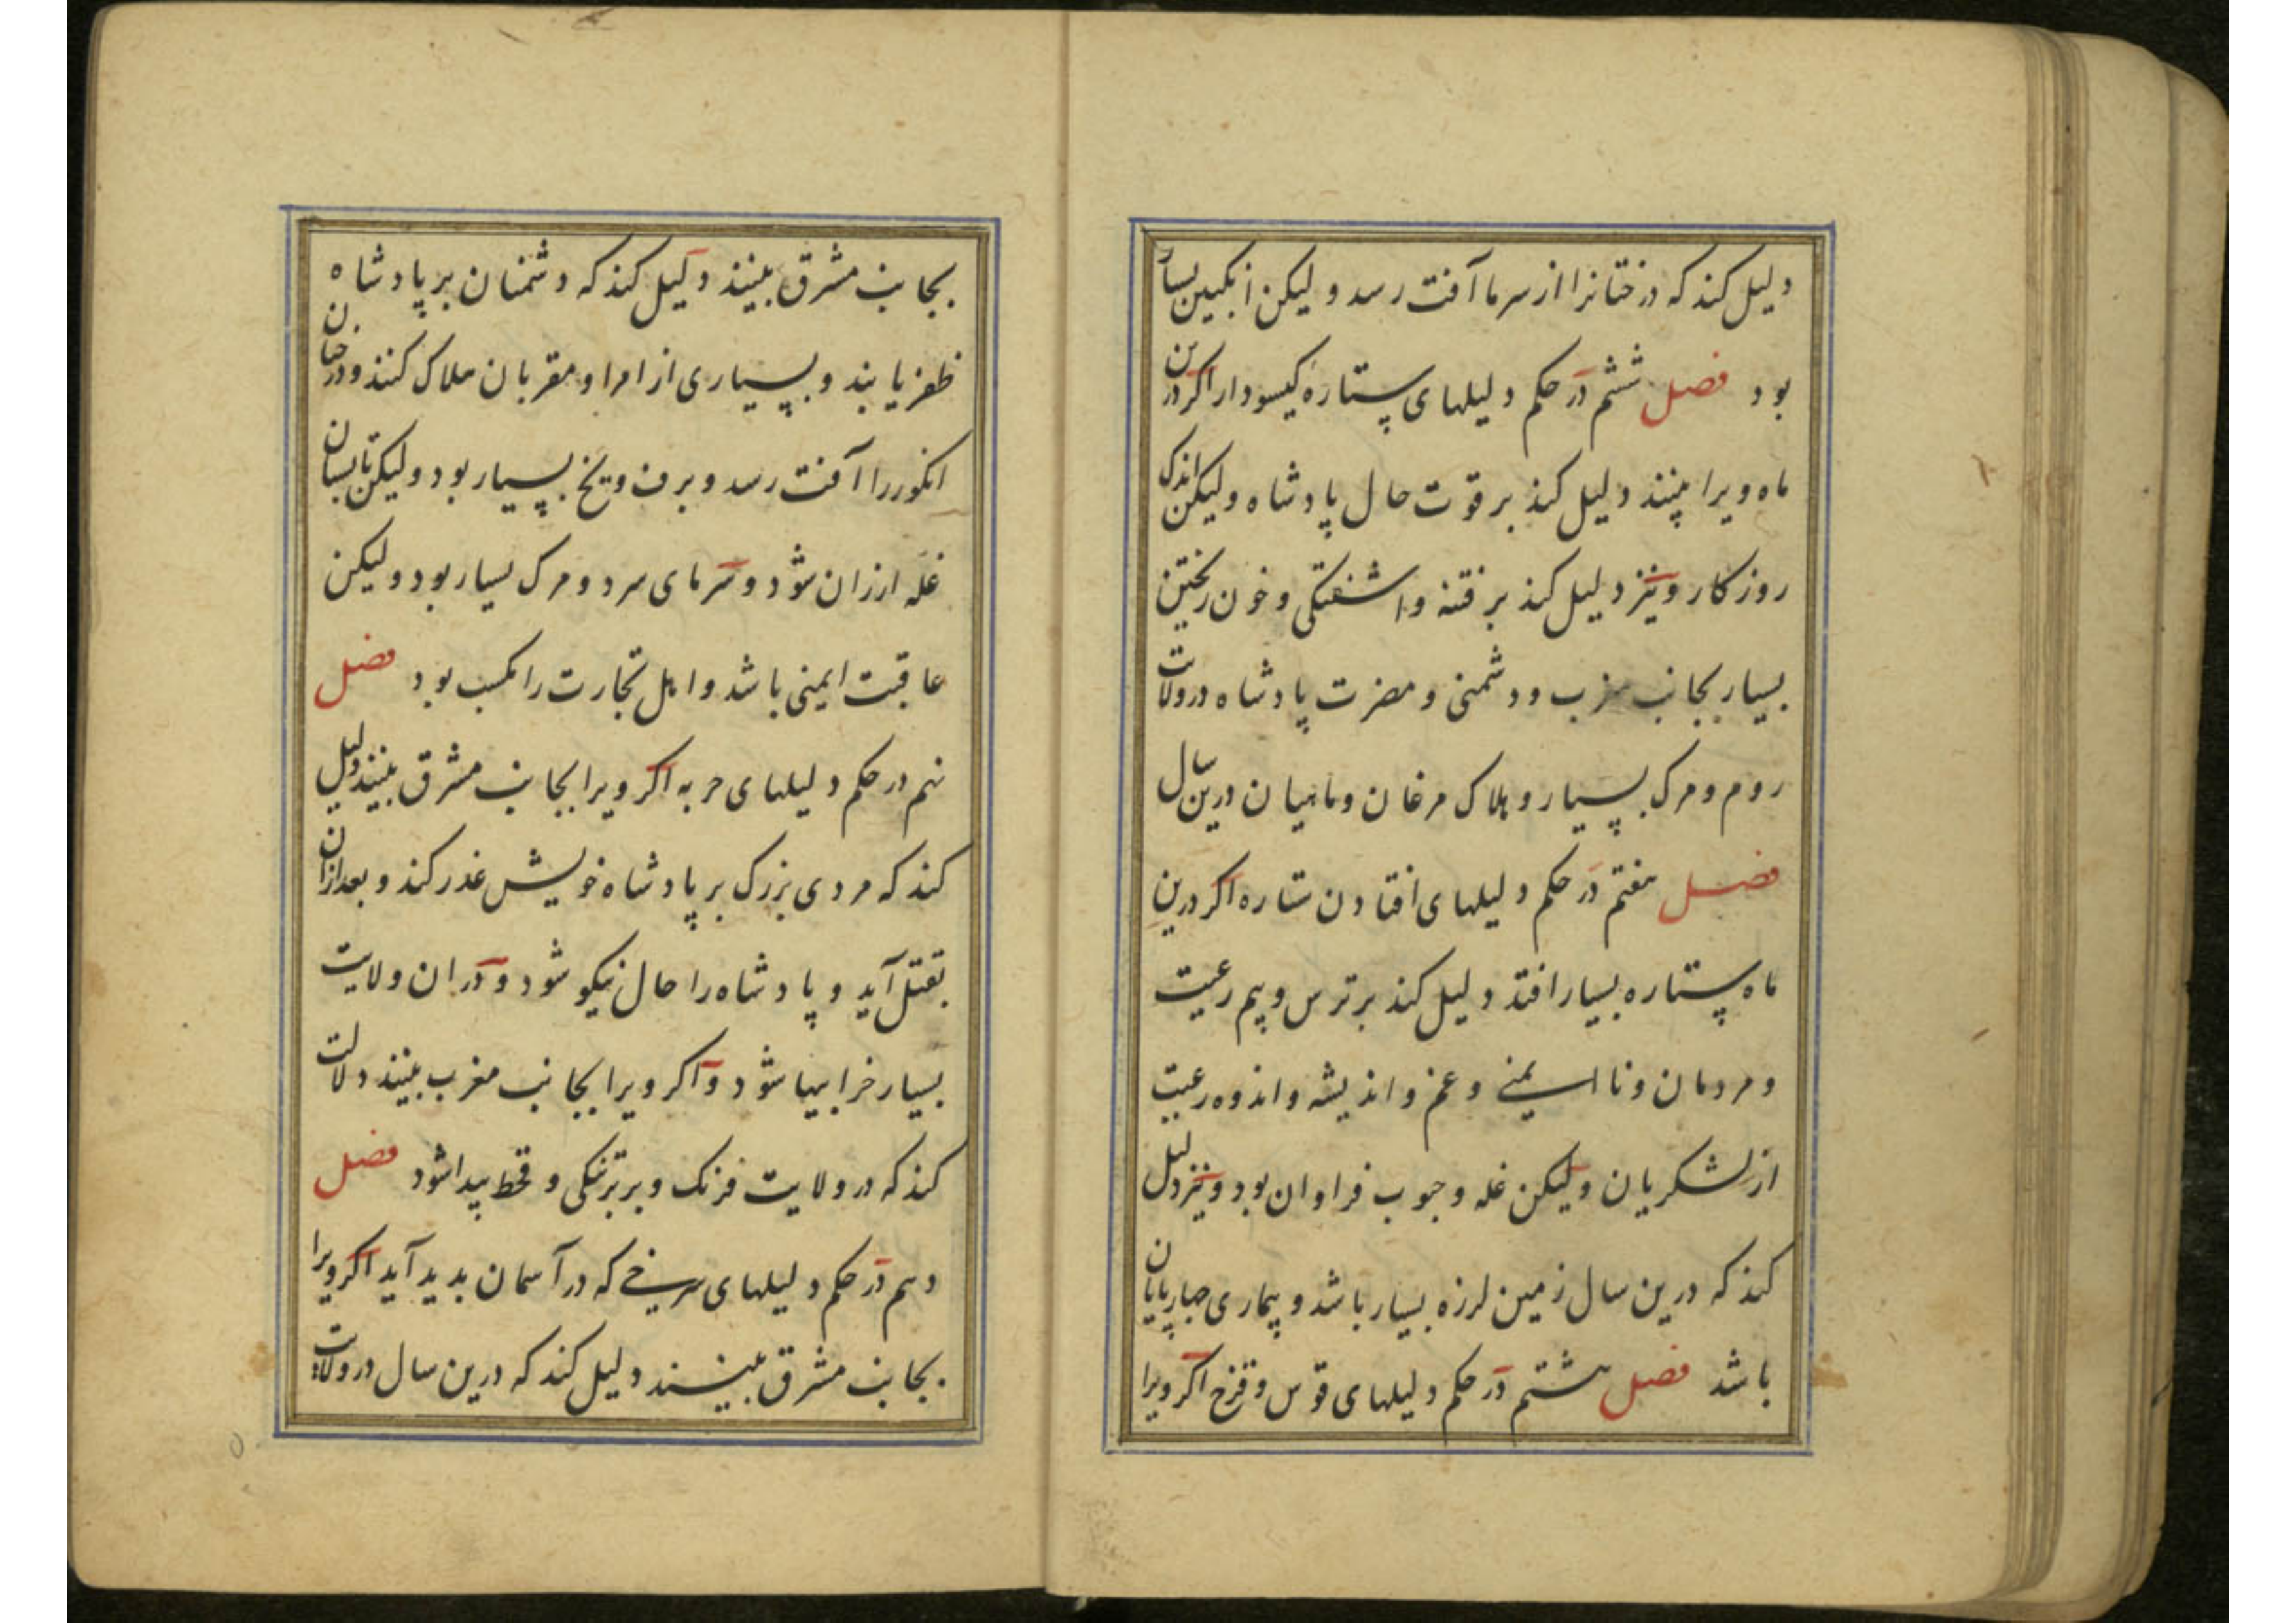 دلیل کند که درختانرا از سرما آفت رسد و لیکن انکبین بسیار
بود فصل ششم در حکم دلیلهای ستاره کیسودار اکر درین
ماه ویرا بینند دلیل کند بر قوت حال پادشاه و لیکن اندک
روزکار و نیز دلیل کند بر فتنه و اشفتکی و خون ریختن
بسیار بجانب مغرب و دشمنی و مضرت پادشاه در ولات
روم و مرک بسیار و هلاک مرغان و ماهیان درین سال
فصل هفتم در حکم دلیلهای افتادن ستاره اکر درین
ماه ستاره بسیار افتد دلیل کند بر ترس و بیم رعیت
و مردمان و نا ایمنی و غم و اندیشه و اندوه رعیت
از لشکریان و لیکن غله و حبوب فراوان بود و نیز دلیل
کند که درین سال زمین لرزه بسیار باشد و بیماری چهارپایان
باشد فصل هشتم در حکم دلیلهای قوس و قزح اکر ویرا
بجانب مشرق بینند دلیل کند که دشمنان بر پادشاه
ظفر یابند و بسیاری از امرا و مقربان هلاک کنند و درختان
انکور را آفت رسد و برف و یخ بسیار بود و لیکن تابستان
غله ارزان شود و سرمای سرد و مرک بسیار بود و لیکن
عاقبت ایمنی باشد و اهل تجارت را مکسب بود فصل
نهم در حکم دلیلهای حربه اکر ویرا بجانب مشرق بینند دلیل
کند که مردی بزرک بر پادشاه خویش غدر کند و بعد ازان
بقتل آید و پادشاه را حال نیکو شود و در ان ولایت
بسیار خرابیها شود و اکر ویرا بجانب مغرب بینند دلالت
کند که در ولایت فرنک و بربر تنکی و قحط پیدا شود فصل
دهم در حکم دلیلهای سرخی که در آسمان بدید آید اکر ویرا
بجانب مشرق بینند دلیل کند که درین سال در ولات